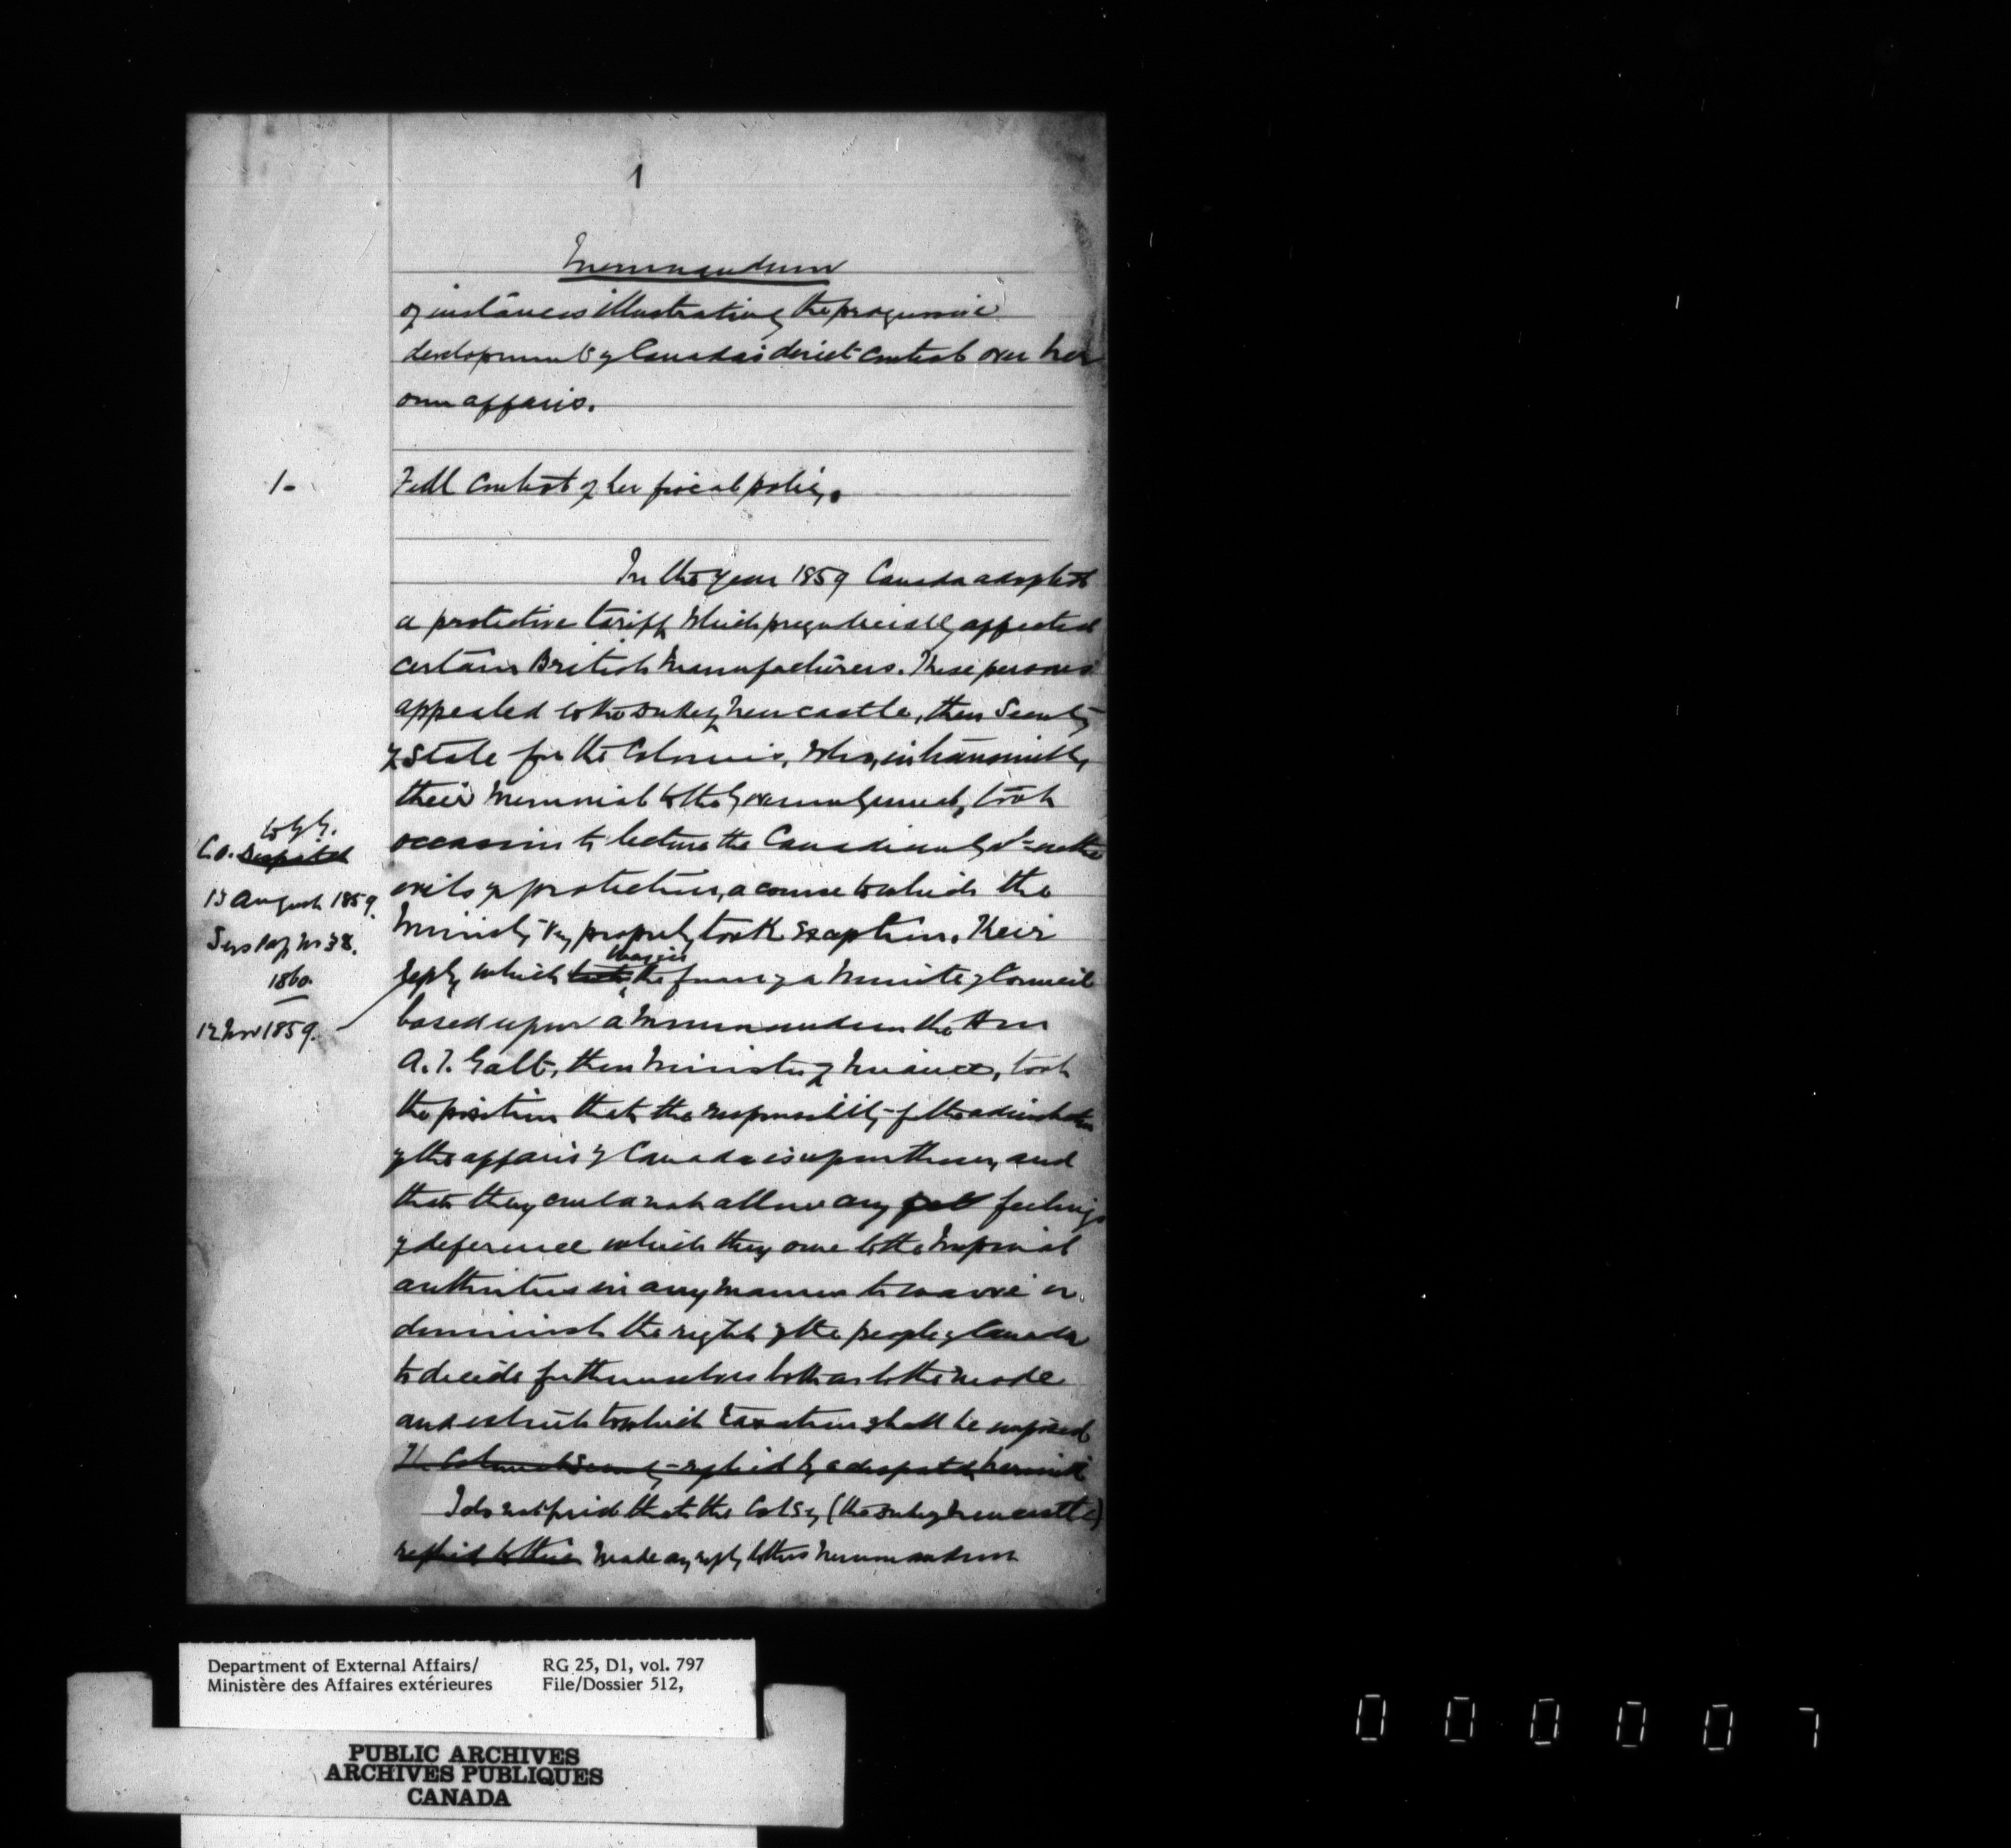 1
Memorandum
of instances illustrating the progressive
development of Canada's direct control over her
own affairs.
1-
Full Control of her fiscal policy.
In the year 1859 Canada adopted
a protective tariff which prejudicially affected
certain British Manufacturers. These persons
appealed to the Duke of Newcastle, then Secretary
of State for the Colonies, who, in transmitting
their Memorial to the Governor General, took
occasion to lecture the Canadian Govt on the
evils of protection, a course to which the
Ministry very properly took exception. Their
reply which took the form of a Minute of Council
based upon a Memorandum the Hon
A. T. Galt, then Minister of Finance, took
the position that the responsibility of the administration
of the affairs of Canada is upon them, and
that they could not allow any feelings
of deference which they owe to the Imperial
authorities in any manner to waive or
diminish the right of the people of Canada
to decide for themselves both as to the mode
and extent to which taxation shall be imposed
The Colonial Secretary replied by a despatch
I do not find that the Col Sy (the Duke of Newcastle)
replied to this made any reply to this Memorandum
to G.G.
C.O. Despatch
13 August 1859.
Sess Pap No 38.
1860.
12 Nov 1859.
Department of External Affairs/
Ministère des Affaires extérieures
RG 25, D1, vol. 797
File/Dossier 512,
PUBLIC ARCHIVES
ARCHIVES PUBLIQUES
CANADA
000007